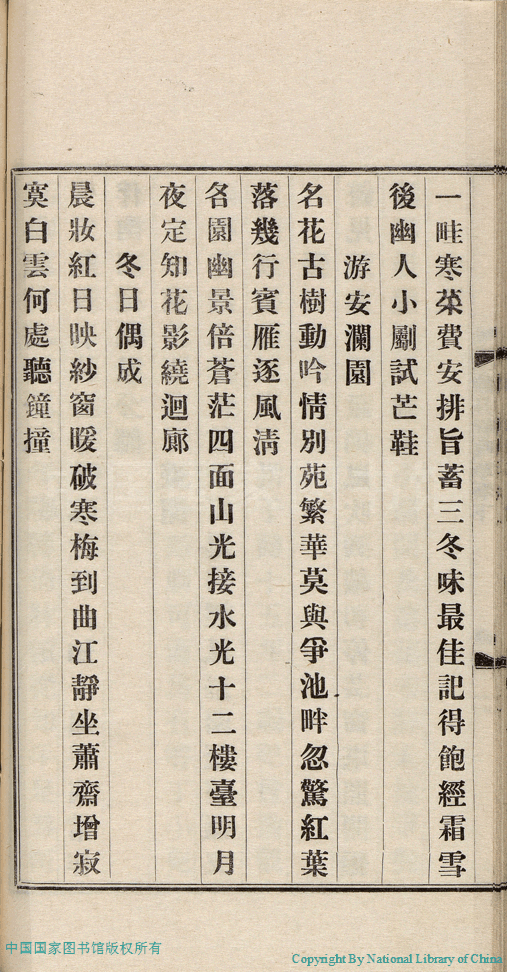 一畦寒菜費安排旨蓄三冬味最佳記得飽經霜雪
後幽人小劚試芒鞋
游安瀾園
名花古樹動吟情別苑繁華莫與爭池畔忽驚紅葉
落幾行賓雁逐風淸
名園幽景倍蒼茫四面山光接水光十二樓臺明月
夜定知花影繞迴廊
冬日偶成
晨妝紅日映紗窗暖破寒梅到曲江靜坐蕭齋增寂
寞白雲何處聽鐘撞
中国国家图书馆版权所有
Copyright By National Library of China